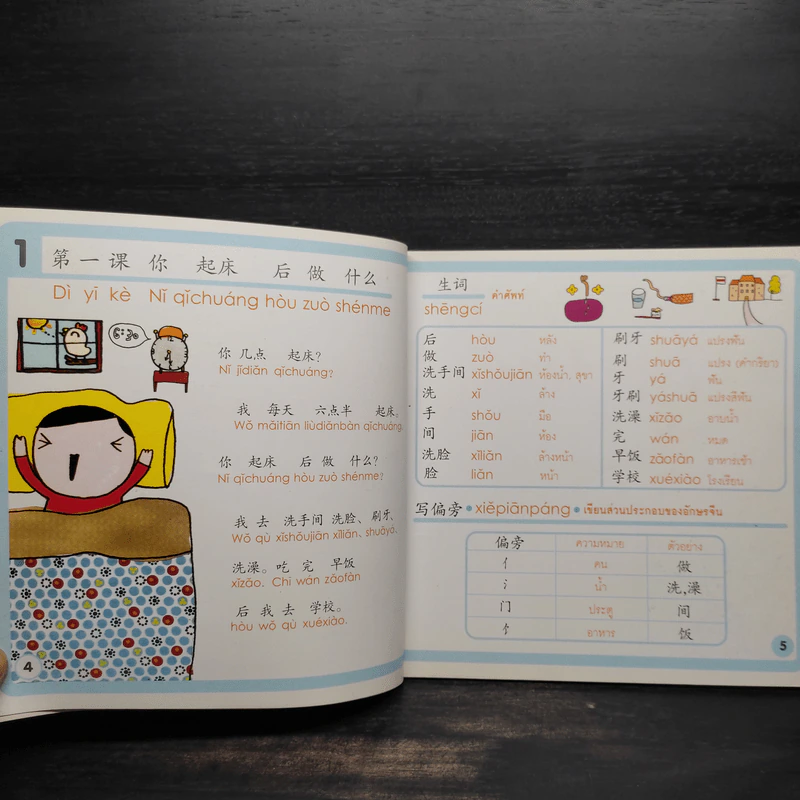 1
第一课 你 起床 后 做 什么
Dì yī kè Nǐ qǐchuáng hòu zuò shénme
6:30
你 几点 起床?
Nǐ jǐdiǎn qǐchuáng?
我 每天 六点半 起床。
Wǒ měitiān liùdiǎnbàn qǐchuáng.
你 起床 后 做 什么?
Nǐ qǐchuáng hòu zuò shénme?
我 去 洗手间 洗脸、刷牙、
Wǒ qù xǐshǒujiān xǐliǎn, shuāyá,
洗澡。吃 完 早饭
xǐzǎo. Chī wán zǎofàn
后 我 去 学校。
hòu wǒ qù xuéxiào.
4
生词 คำศัพท์
shēngcí
后 hòu หลัง
做 zuò ทำ
洗手间 xǐshǒujiān ห้องน้ำ, สุขา
洗 xǐ ล้าง
手 shǒu มือ
间 jiān ห้อง
洗脸 xǐliǎn ล้างหน้า
脸 liǎn หน้า
刷牙 shuāyá แปรงฟัน
刷 shuā แปรง (คำกริยา)
牙 yá ฟัน
牙刷 yáshuā แปรงสีฟัน
洗澡 xǐzǎo อาบน้ำ
完 wán หมด
早饭 zǎofàn อาหารเช้า
学校 xuéxiào โรงเรียน
写偏旁 • xiěpiānpáng • เขียนส่วนประกอบของอักษรจีน
偏旁 ความหมาย ตัวอย่าง
亻 คน 做
氵 น้ำ 洗,澡
门 ประตู 间
饣 อาหาร 饭
5